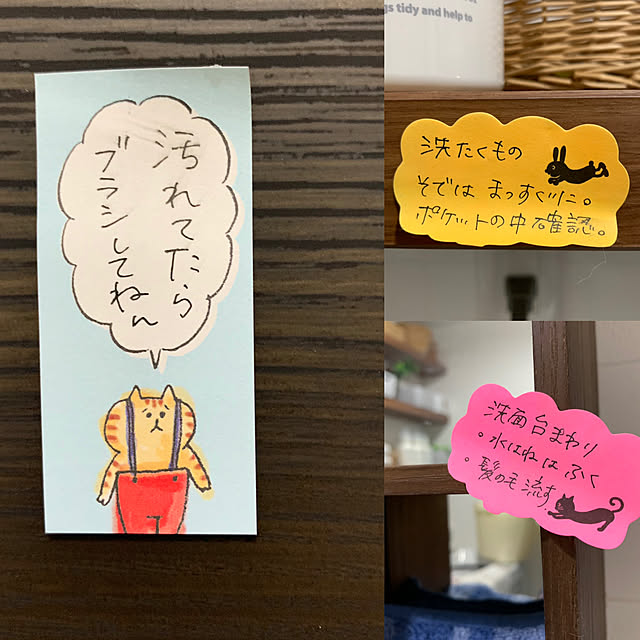 汚れてたら
ブラシしてねん
gs tidy and help to
洗たくもの
そでは まっすぐに。
ポケットの中確認。
洗面台まわり
・水はねは ふく
・髪の毛 流す